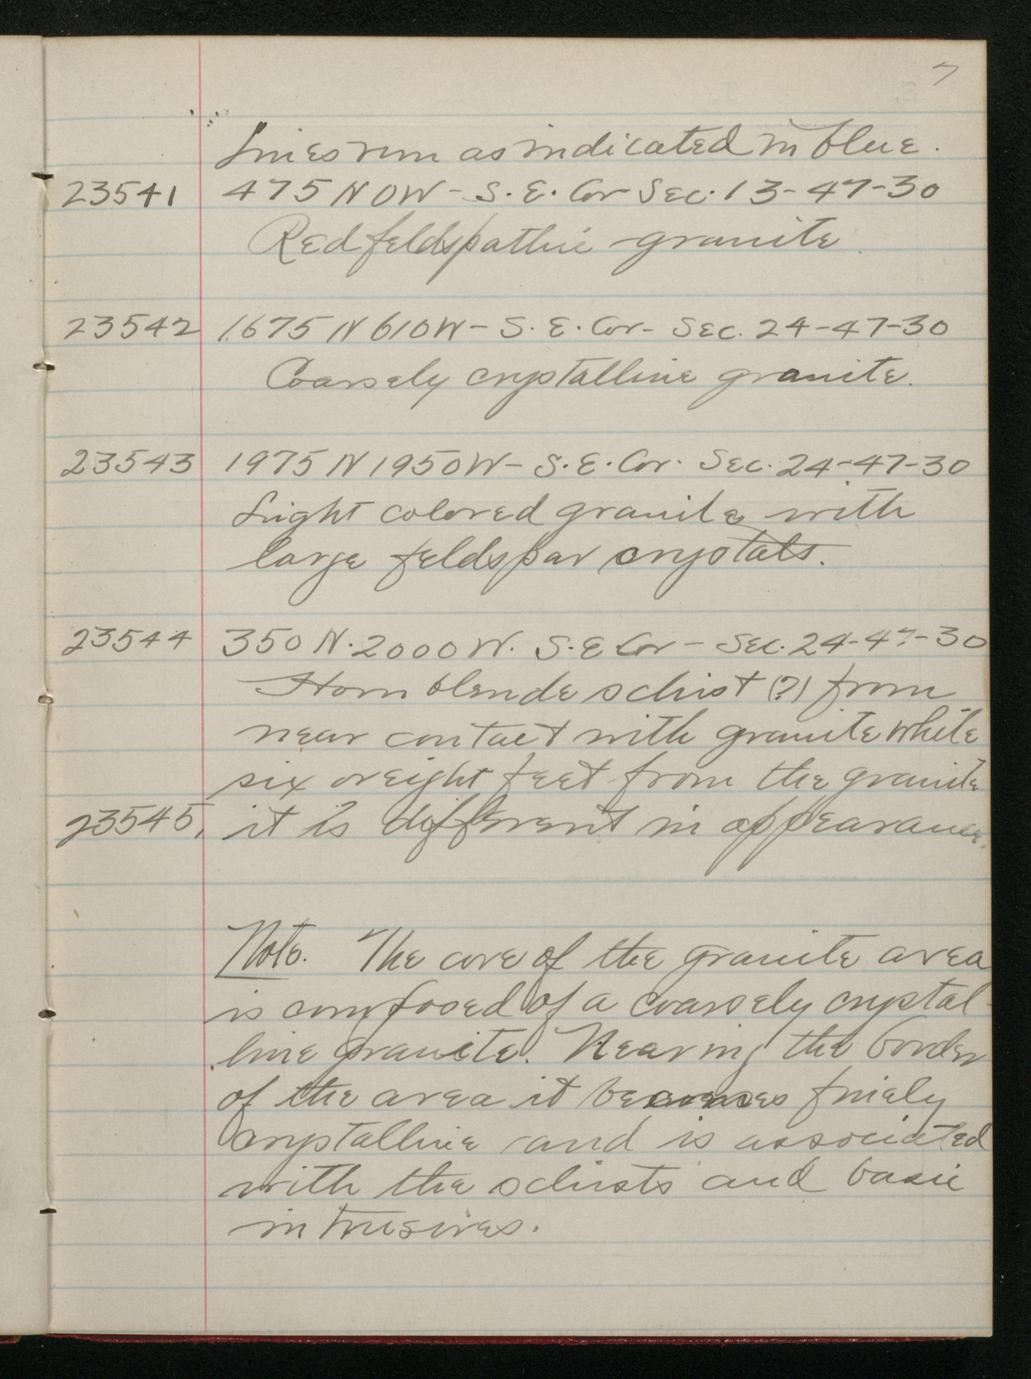 7
Lines run as indicated in blue.
23541 475 N 0 W - S. E. Cor Sec. 13-47-30
Red feldspathic granite.
23542 1675 N 610 W - S. E. Cor - Sec. 24-47-30
Coarsely crystalline granite.
23543 1975 N 1950 W - S. E. Cor. Sec. 24-47-30
Light colored granite with
large feldspar crystals.
23544 350 N. 2000 W. S. E Cor - Sec. 24-47-30
Hornblende schist (?) from
near contact with granite while
six or eight feet from the granite
23545. it is different in appearance.
Note. The core of the granite area
is composed of a coarsely crystal-
line granite. Nearing the border
of the area it becomes finely
crystalline and is associated
with the schists and basic
intrusives.